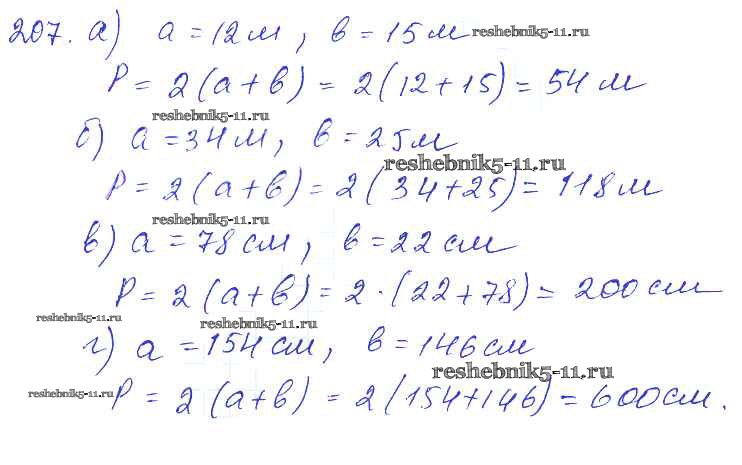 207. а) a = 12 м, в = 15 м reshebnik5-11.ru
P = 2(a+в) = 2(12+15) = 54 м
reshebnik5-11.ru
б) a = 34 м, в = 25 м
reshebnik5-11.ru
P = 2(a+в) = 2(34+25) = 118 м
reshebnik5-11.ru
в) a = 78 см, в = 22 см
P = 2(a+в) = 2·(22+78) = 200 см
reshebnik5-11.ru reshebnik5-11.ru
г) a = 154 см, в = 146 см
reshebnik5-11.ru
reshebnik5-11.ru P = 2(a+в) = 2(154+146) = 600 см.